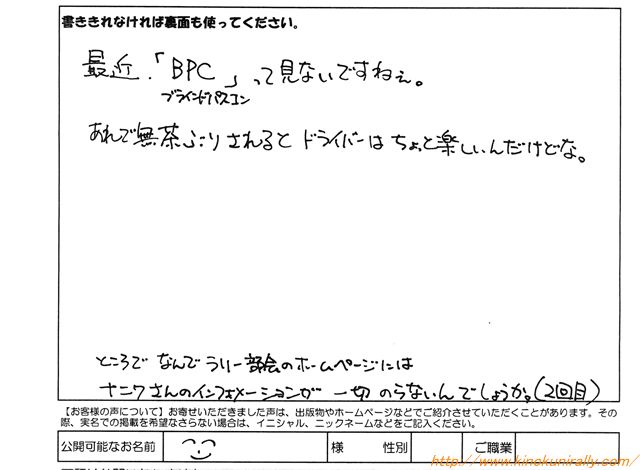 書ききれなければ裏面も使ってください。
最近、「BPC」って見ないですねぇ。
ブラインドパスコン
あれで無茶ぶりされるとドライバーはちょっと楽しいんだけどな。
ところでなんでラリー部会のホームページには
ナニワさんのインフォメーションが一切のらないんでしょうか。(2回目)
【お客様の声について】お寄せいただきました声は、出版物やホームページなどでご紹介させていただくことがあります。その
際、実名での掲載を希望なさらない場合は、イニシャル、ニックネームなどをご記入ください。
公開可能なお名前 様 性別 ご職業
http://www.kinokunirally.com/